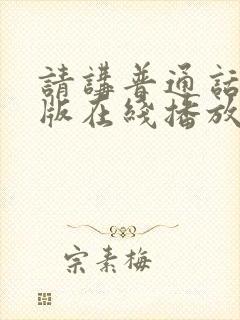 請講普通話
版在綫播放
宗素梅